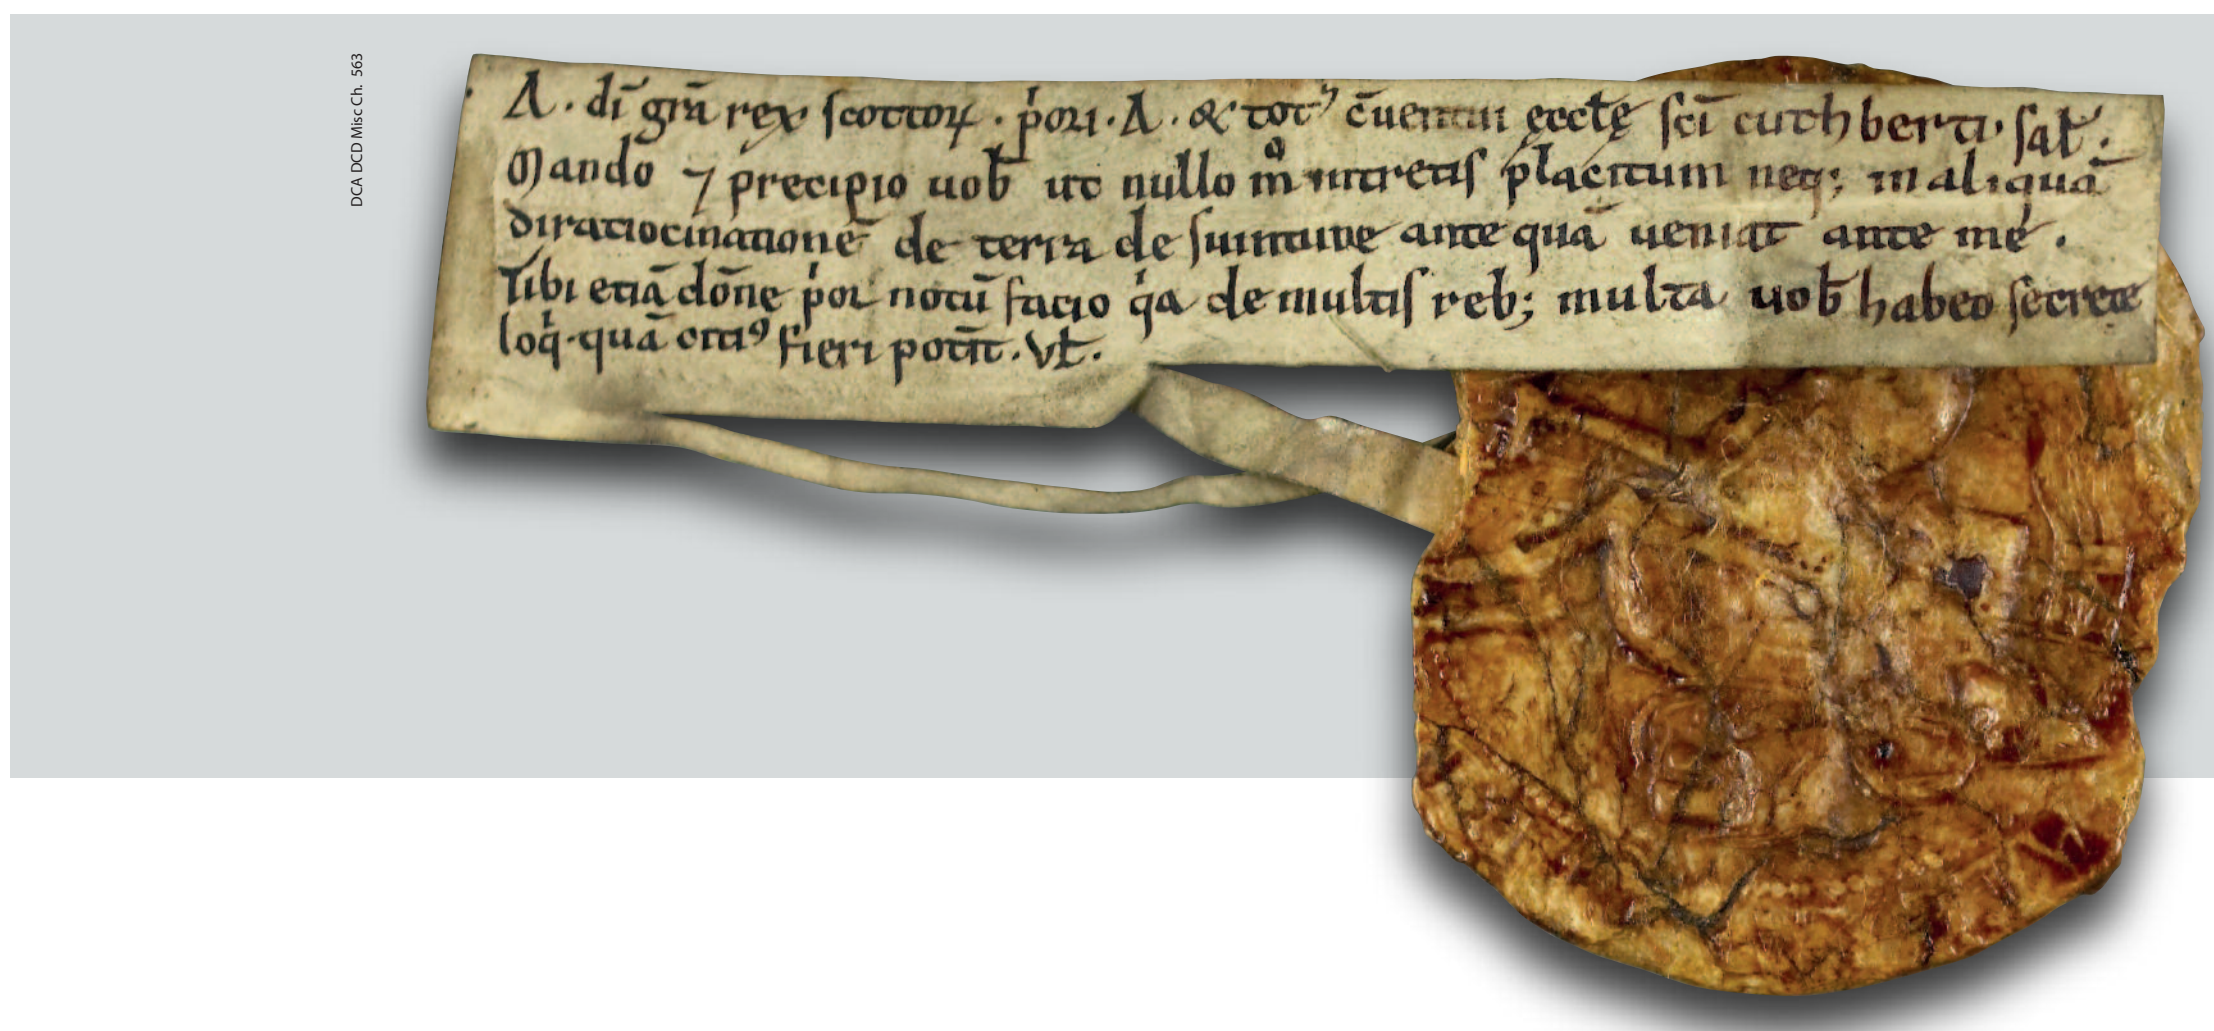 DCA DCD Misc Ch. 563
A . dī grā rex ſcottoꝝ . p͛ori . A . & totꝰ c̄uentui ęccłę ſcī cuthberti . ſał .
Mando ⁊ precipio uob̄ ut nullo m̊ intretis placitum neq; in aliquā
diratiocinationē de terra de ſuintune ante quā ueniat ante me .
Tibi etiā dōne p͛or notū facio q͛a de multiſ reb; multa uob̄ habeo ſecrete
loq͛ . quā citiꝰ fieri pot̄it . Vł .